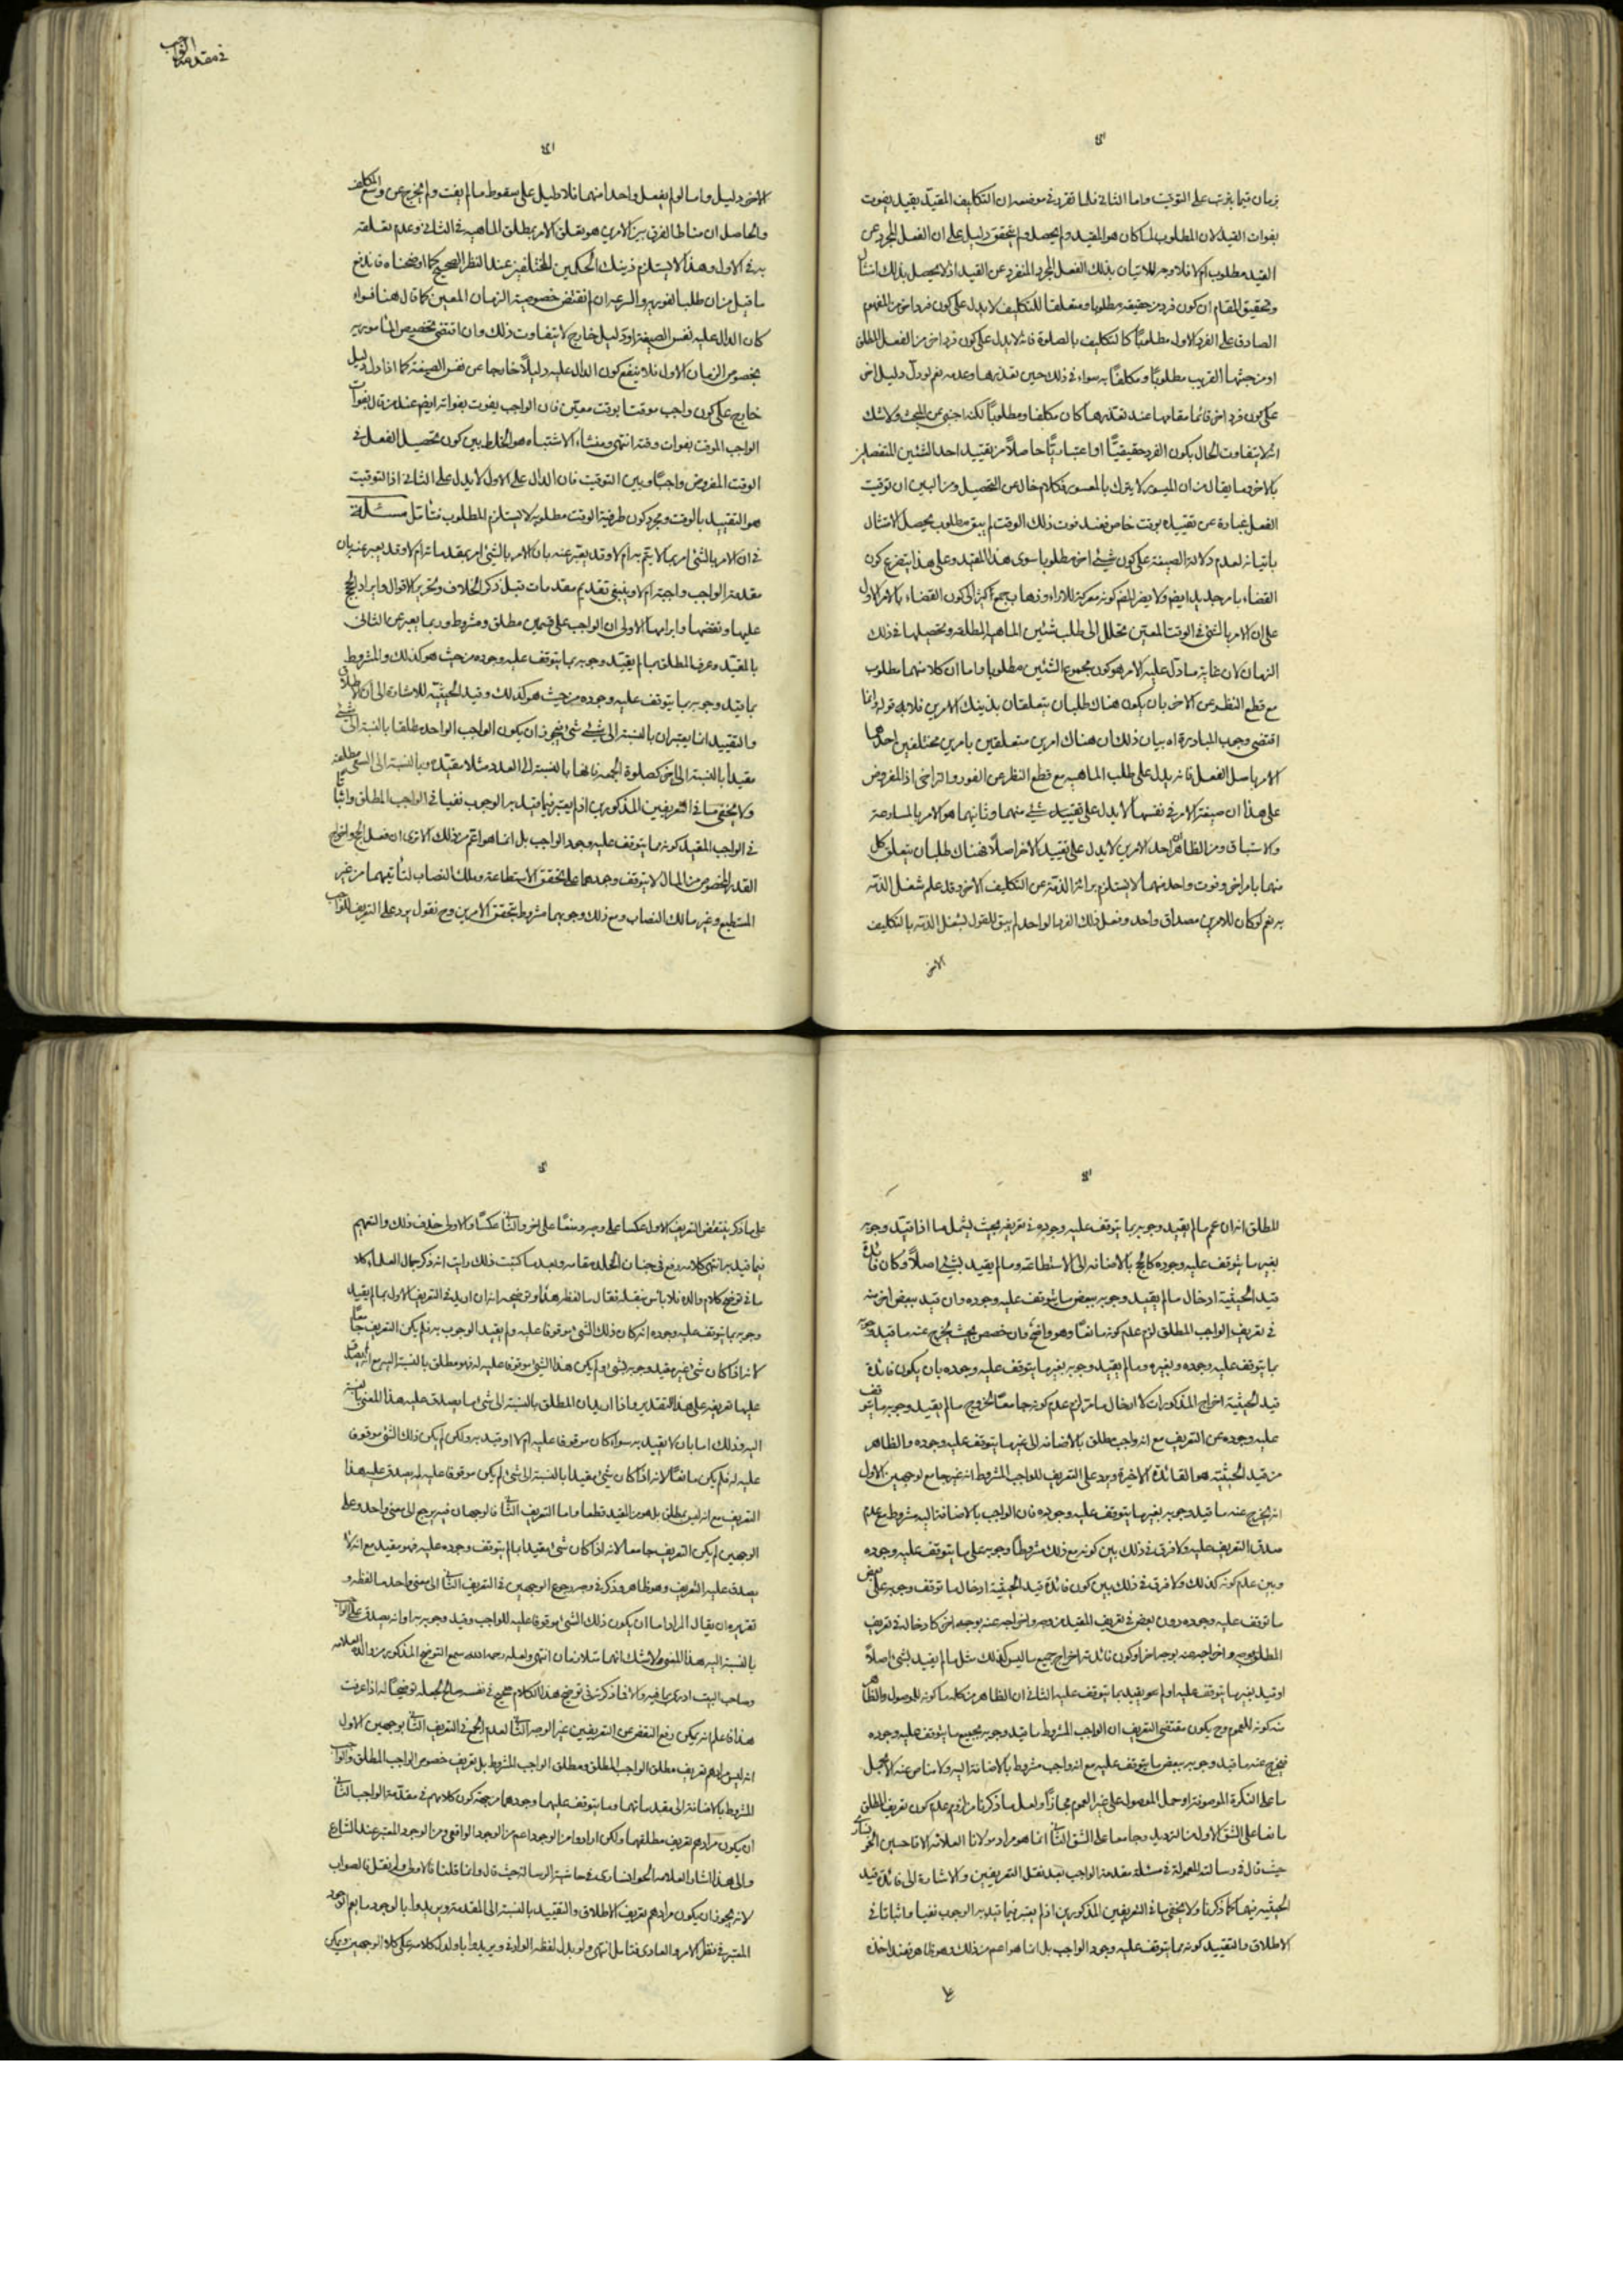 زمان فيما يترتب على التوقيت واما الثانى فلما تقرر فى موضعه ان التكليف المقيد بقيد يفوت
بفوات القيد لان المطلوب لما كان هو المقيد ولم يحصل ولم يتحقق دليل على ان الفعل المجرد عن
القيد مطلوب ام لا فلا وجه للاتيان بذلك الفعل المجرد المنفرد عن القيد اذ لا يحصل بذلك امتثال
وتحقيق المقام ان كون فرد من حقيقة مطلوبا ومتعلقا للتكليف لا يدل على كون فرد اخر من المفهوم
الصادق على الفرد الاول مطلوبا كالتكليف بالصلوة فانه لا يدل على كون فرد اخر من الفعل المطلق
او من جنسها القريب مطلوبا ومكلفا به سواء فى ذلك حين تعذرها وعدمه نعم لو دل دليل اخر
على كون فرد اخر قائما مقامها عند تعذرها كان مكلفا ومطلوبا لكنه اجنبى عن المبحث ولا شك
انه لا يتفاوت الحال بكون الفرد حقيقيا او اعتباريا حاصلا من تقييد احد الشيئين المنفصلين
بالاخر وما يقال من ان الميسور لا يترك بالمعسور فكلام خال عن التحصيل ومن البين ان توقيت
الفعل عبارة عن تقييده بوقت خاص فعند فوت ذلك الوقت لم يبق مطلوب يحصل الامتثال
باتيانه لعدم دلالة الصيغة على كون شىء اخر مطلوبا سوى هذا المقيد وعلى هذا يتفرع كون
القضاء بامر جديد ايضا ولا يضر المنع كونه معركة للاراء وذهاب جمع اكثر الى كون القضاء بالامر الاول
على ان الامر بالشىء فى الوقت المعين تحلل الى طلب شيئين الماهية المطلقة وتحصيلها فى ذلك
الزمان لان غاية ما دل عليه الامر هو كون مجموع الشيئين مطلوبا واما ان كلا منهما مطلوب
مع قطع النظر عن الاخر بان يكون هناك طلبان يتعلقان بذينك الامرين فلا قوله وانما
اقتضى وجوب المبادرة اه بيان ذلك ان هناك امرين متعلقين بامرين مختلفين احدهما
الامر باصل الفعل فانه يدل على طلب الماهية مع قطع النظر عن الفور والتراخى اذ المفروض
على هذا ان صيغة الامر فى نفسها لا يدل على تقييد شىء منهما وثانيهما هو الامر بالمسارعة
والاستباق ومن الظاهر ان احد الامرين لا يدل على تقييد الاخر اصلا فهناك طلبان يتعلق كل
منهما بامر اخر وفوت واحد منهما لا يستلزم برائة الذمة عن التكليف الاخر وقد علم شغل الذمة
به نعم لو كان للامرين مصداق واحد وفعل ذلك الفرد الواحد لم يبق للقول بشغل الذمة بالتكليف
الاخر
فى مقدمة الواجب
الاخر دليل واما لو لم يفعل واحدا منهما فلا دليل على سقوط ما لم يفت ولم يخرج عن وسع المكلف
والحاصل ان مناط الفرق بين الامرين هو تعلق الامر بمطلق الماهية فى الثانى وعدم تعلقه
به فى الاول وهذا لا يستلزم ذينك الحكمين المختلفين عند النظر الصحيح كما اوضحناه فاندفع
ما قيل من ان طلب الفور والسرعة ان لم يقتض خصوصية الزمان المعين كما قال هنا فسواء
كان الدال عليه نفس الصيغة او دليل خارج لا يتفاوت ذلك وان اقتضى تخصيص المامور به
بخصوص الزمان الاول فلا ينفع كون الدال عليه دليلا خارجا عن نفس الصيغة كما اذا دل دليل
خارج على كون واجب موقتا بوقت معين فان الواجب يفوت بفواته ايضا عند من قال بفوات
الواجب الموقت بفوات وقته انتهى ومنشاء الاشتباه هو الخلط بين كون تحصيل الفعل فى
الوقت المفروض واجبا وبين التوقيت فان الدال على الاول لا يدل على الثانى اذ التوقيت
هو التقييد بالوقت ومجرد كون ظرفية الوقت مطلوبة لا يستلزم المطلوب فتامل مسئلة
فى ان الامر بالشىء امر بما لا يتم به ام لا وقد يعبر عنه بان الامر بالشىء امر بمقدماته ام لا وقد يعبر عنه بان
مقدمة الواجب واجبة ام لا وينبغى تقديم مقدمات قبل ذكر الخلاف وتحرير الاقوال وايراد الحجج
عليها ونقضها وابرامها الاولى ان الواجب على قسمين مطلق ومشروط وربما يعبر عن الثانى
بالمقيد وعرف المطلق بما لم يقيد وجوبه بما يتوقف عليه وجوده من حيث هو كذلك والمشروط
بما قيد وجوبه بما يتوقف عليه وجوده من حيث هو كذلك وقيد الحيثية للاشارة الى ان الاطلاق
والتقييد انما يعتبران بالنسبة الى شىء شىء فيجوز ان يكون الواجب الواحد مطلقا بالنسبة الى شىء
مقيدا بالنسبة الى اخر كصلوة الجمعة فانها بالنسبة الى العدد مثلا مقيدة وبالنسبة الى السعى مطلقة
ولا يخفى ما فى التعريفين المذكورين اذ لم يعتبر فيما قيد به الوجوب نفيا فى الواجب المطلق واثباتا
فى الواجب المقيد كونه مما يتوقف عليه وجود الواجب بل انما هو اعم من ذلك الا ترى ان فعل الحج واخراج
القدر المخصوص من المال لا يتوقف وجودهما على تحقق الاستطاعة وملك النصاب لتاتيهما من غير
المستطيع وغير مالك النصاب ومع ذلك وجوبهما مشروط بتحقق الامرين وح نقول يرد على التعريف للواجب
المطلق انه ان عم ما لم يقيد وجوبه بما يتوقف عليه وجوده فى تعريفه بحيث يشمل ما اذا قيد وجوبه
بغير ما يتوقف عليه وجوده كالحج بالاضافة الى الاستطاعة وما لم يقيد بشىء اصلا وكان فائدة
قيد الحيثية ادخال ما لم يقيد وجوبه ببعض ما يتوقف عليه وجوده وان قيد ببعض اخر منه
فى تعريف الواجب المطلق لزم عدم كونه مانعا وهو واضح وان خصص بحيث يخرج عنه ما قيد وجوبه
بما يتوقف عليه وجوده وبغيره وما لم يقيد وجوبه بغير ما يتوقف عليه وجوده بان يكون فائدة
قيد الحيثية اخراج المذكورات لا ادخال ما مر لزم عدم كونه جامعا لخروج ما لم يقيد وجوبه بما يتوقف
عليه وجوده عن التعريف مع انه واجب مطلق بالاضافة الى غير ما يتوقف عليه وجوده والظاهر
من قيد الحيثية هو الفائدة الاخيرة ويرد على التعريف للواجب المشروط انه غير جامع لوجهين الاول
انه يخرج عنه ما قيد وجوبه بغير ما يتوقف عليه وجوده فان الواجب بالاضافة اليه مشروط مع عدم
صدق التعريف عليه ولا فرق فى ذلك بين كونه مع ذلك مشروطا وجوبه على ما يتوقف عليه وجوده
وبين عدم كونه كذلك ولا فرق فى ذلك بين كون فائدة قيد الحيثية ادخال ما توقف وجوبه على بعض
ما توقف عليه وجوده دون بعض فى تعريف المقيد من وجه واخراجه عنه بوجه اخر كادخاله فى تعريف
المطلق بوجه واخراجه عنه بوجه اخر او كون فائدته اخراج جميع ما ليس كذلك مثل ما لم يقيد بشىء اصلا
او قيد بغير ما يتوقف عليه او لم يقيد بما يتوقف عليه الثانى ان الظاهر من كلمة ما كونه للموصول والظاهر
منه كونه للعموم وح يكون مقتضى التعريف ان الواجب المشروط ما قيد وجوبه بجميع ما يتوقف عليه وجوده
فيخرج عنه ما قيد وجوبه ببعض ما يتوقف عليه مع انه واجب مشروط بالاضافة اليه ولا مناص عنه الا بحمل
ما على النكرة الموصوفة او حمل الموصول على غير العموم مجازا ولعل ما ذكرنا من لزوم عدم كون تعريف المطلق
مانعا على الشق الاول من الترديد وجامعا على الشق الثانى انما هو مراد مولانا العلامة الاقا حسين الخوانسارى
حيث قال فى رسالته المعمولة فى مسئلة مقدمة الواجب بعد نقل التعريفين والاشارة الى فائدة قيد
الحيثية فيهما كما ذكرنا ولا يخفى ما فى التعريفين المذكورين اذ لم يعتبر فيما قيد به الوجوب نفيا واثباتا فى
الاطلاق والتقييد كونه مما يتوقف عليه وجود الواجب بل انما هو اعم من ذلك وهو ظاهر فعند اخذه
على ما ذكر ينتقض التعريف الاول عكسا على وجه ومنعا على اخر والثانى عكسا فالاولى حذف ذلك والتعميم
فيما قيد به انتهى كلامه رفع فى جنان الخلد مقامه وبعد ما كتبت ذلك رايت انه ذكر جمال العلماء كلاما
ما فى توضيح كلام والده فلا باس بنقله فقال ما لفظه هذا وتوضيحه انه ان اريد فى التعريف الاول بما لم يقيد
وجوبه بما يتوقف عليه وجوده انه كان ذلك الشىء موقوفا عليه ولم يقيد الوجوب به فلم يكن التعريف جامعا
لانه اذا كان شىء غير مقيد وجوبه بشىء ولم يكن هذا الشىء موقوفا عليه له فهو مطلق بالنسبة اليه مع انه لم يصدق
عليه تعريفه على هذا التقدير واذا اريد ان المطلق بالنسبة الى شىء ما يصدق عليه هذا المعنى بالنسبة
اليه وذلك اما بان لا يقيد به سواء كان موقوفا عليه ام لا او قيد به ولكن لم يكن ذلك الشىء موقوفا
عليه له فلم يكن مانعا لانه اذا كان شىء مقيدا بالنسبة الى شىء لم يكن موقوفا عليه له يصدق عليه هذا
التعريف مع انه ليس بمطلق بل هو من المقيد قطعا واما التعريف الثانى فالوجهان فيه يرجع الى معنى واحد وعلى
الوجهين لم يكن التعريف جامعا لانه اذا كان شىء مقيدا بما لم يتوقف وجوده عليه فهو مقيد مع انه لا
يصدق عليه التعريف وهو ظاهر وذكر فى وجه رجوع الوجهين فى التعريف الثانى الى معنى واحد ما لفظه و
تقريره ان يقال المراد اما ان يكون ذلك الشىء موقوفا عليه للواجب وقيد وجوبه به او انه يصدق على الواجب
بالنسبة اليه هذا المعنى ولا شك انهما متلازمان انتهى ولعله رحمه الله سمع التوضيح المذكور من والده العلامة
وصاحب البيت ادرى بما فيه والا فما ذكرته فى توضيح هذا الكلام صحيح فى نفسه صالح لجعله توضيحا له اذا عرفت
هذا فاعلم انه يمكن دفع النقض عن التعريفين غير الوجه الثانى لعدم الجمع فى التعريف الثانى بوجهين الاول
انه ليس مرادهم تعريف مطلق الواجب المطلق ومطلق الواجب المشروط بل تعريف خصوص الواجب المطلق والواجب
المشروط بالاضافة الى مقدماتهما وما يتوقف عليهما وجودهما من جهة كون كلامهم فى مقدمة الواجب الثانى
ان يكون مرادهم تعريف مطلقهما ولكن ارادوا من الوجود اعم من الوجود الواقعى ومن الوجود المعتبر عند الشارع
والى هذا اشار العلامة الخوانسارى فى حاشية الرسالة حيث قال وانما قلنا فالاولى ولم يقل فالصواب
لانه يجوز ان يكون مرادهم تعريف الاطلاق والتقييد بالنسبة الى المقدمة ويريدوا بالوجود ما يعم الوجود
المعتبر فى نظر الامر والعادى فتامل انتهى ولو بدل لفظه الواو فى ويريدوا باو لدل كلامه على كلا الوجهين ويمكن